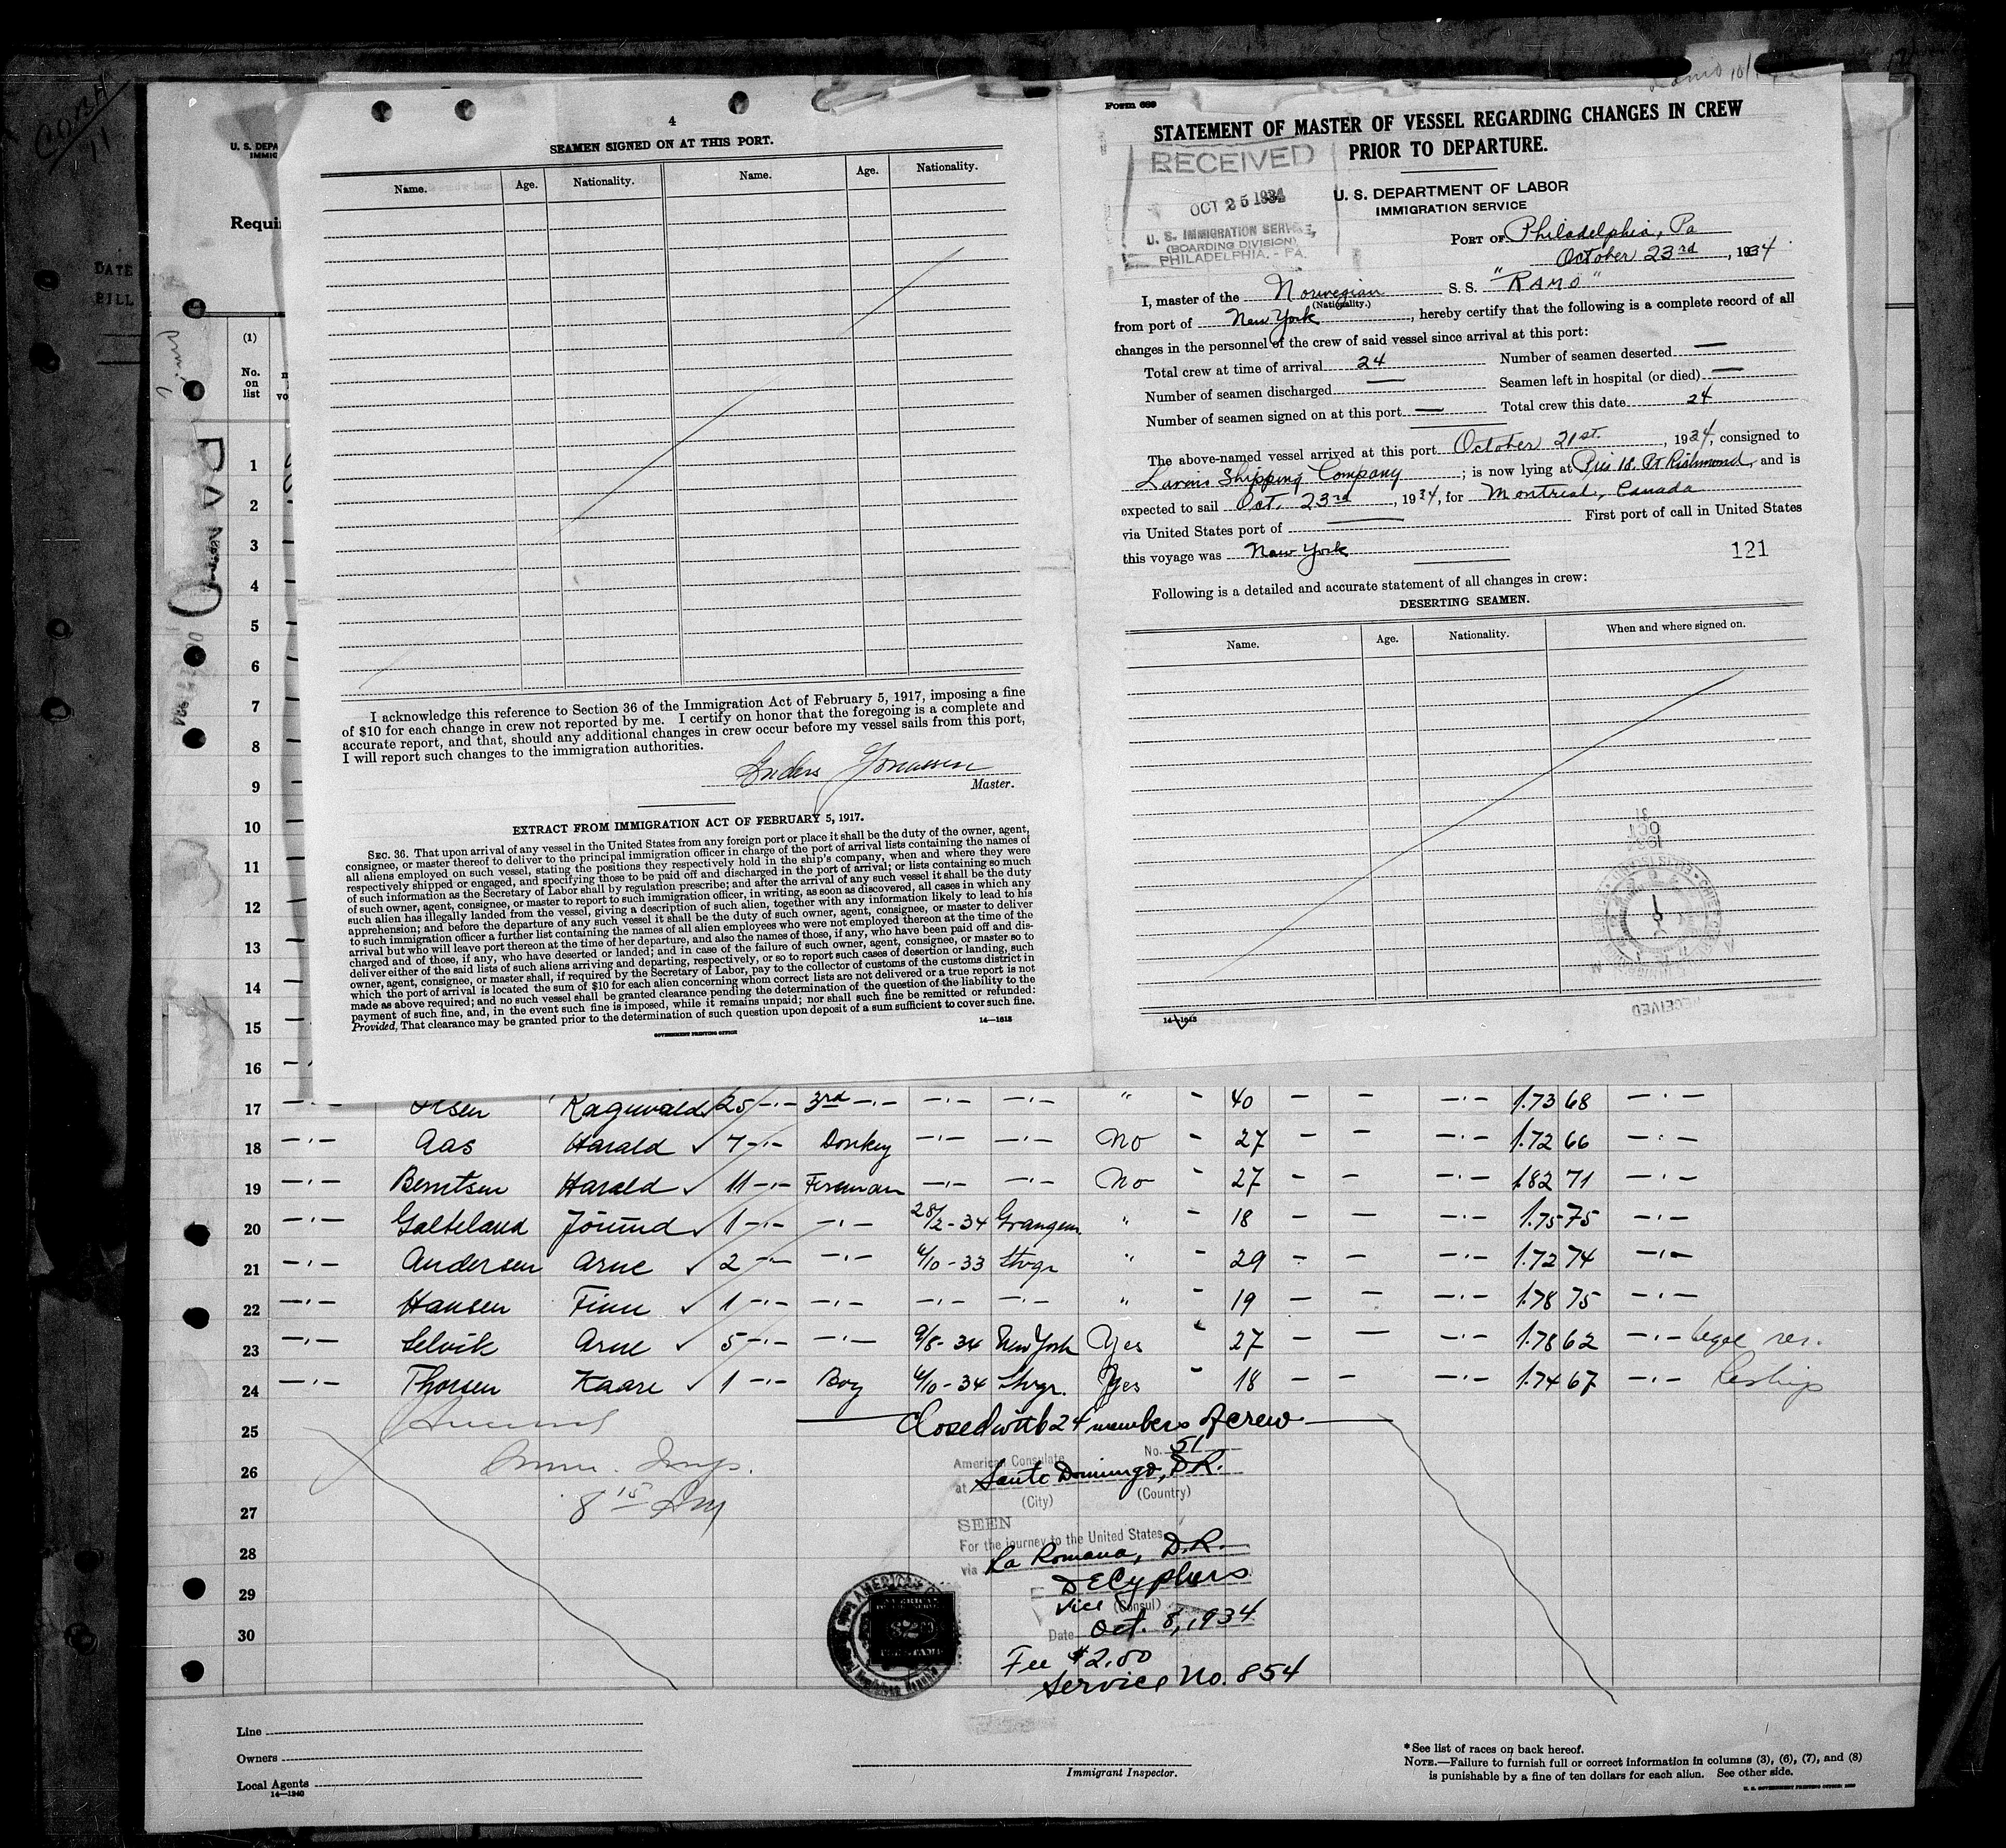 CORH
11
4
SEAMEN SIGNED ON AT THIS PORT.
Name. Age. Nationality. Name. Age. Nationality.
I acknowledge this reference to Section 36 of the Immigration Act of February 5, 1917, imposing a fine
of $10 for each change in crew not reported by me. I certify on honor that the foregoing is a complete and
accurate report, and that, should any additional changes in crew occur before my vessel sails from this port,
I will report such changes to the immigration authorities.
Master.
EXTRACT FROM IMMIGRATION ACT OF FEBRUARY 5, 1917.
SEC. 36. That upon arrival of any vessel in the United States from any foreign port or place it shall be the duty of the owner, agent,
consignee, or master thereof to deliver to the principal immigration officer in charge of the port of arrival lists containing the names of
all aliens employed on such vessel, stating the positions they respectively hold in the ship's company, when and where they were
respectively shipped or engaged, and specifying those to be paid off and discharged in the port of arrival; or lists containing so much
of such information as the Secretary of Labor shall by regulation prescribe; and after the arrival of any such vessel it shall be the duty
of such owner, agent, consignee, or master to report to such immigration officer, in writing, as soon as discovered, all cases in which any
such alien has illegally landed from the vessel, giving a description of such alien, together with any information likely to lead to his
apprehension; and before the departure of any such vessel it shall be the duty of such owner, agent, consignee, or master to deliver
to such immigration officer a further list containing the names of all alien employees who were not employed thereon at the time of the
arrival but who will leave port thereon at the time of her departure, and also the names of those, if any, who have been paid off and dis-
charged and of those, if any, who have deserted or landed; and in case of the failure of such owner, agent, consignee, or master so to
deliver either of the said lists of such aliens arriving and departing, respectively, or so to report such cases of desertion or landing, such
owner, agent, consignee, or master shall, if required by the Secretary of Labor, pay to the collector of customs of the customs district in
which the port of arrival is located the sum of $10 for each alien concerning whom correct lists are not delivered or a true report is not
made as above required; and no such vessel shall be granted clearance pending the determination of the question of the liability to the
payment of such fine, and, in the event such fine is imposed, while it remains unpaid; nor shall such fine be remitted or refunded:
Provided, That clearance may be granted prior to the determination of such question upon deposit of a sum sufficient to cover such fine.
GOVERNMENT PRINTING OFFICE 14—1613
Form 689
STATEMENT OF MASTER OF VESSEL REGARDING CHANGES IN CREW
PRIOR TO DEPARTURE.
RECEIVED
OCT 25 1934
U. S. IMMIGRATION SERVICE,
(BOARDING DIVISION)
PHILADELPHIA, - PA.
U. S. DEPARTMENT OF LABOR
IMMIGRATION SERVICE
PORT OF Philadelphia, Pa
October 23rd, 1934
I, master of the Norwegian S. S. "RAMO"
(Nationality.)
from port of New York, hereby certify that the following is a complete record of all
changes in the personnel of the crew of said vessel since arrival at this port:
Total crew at time of arrival 24 Number of seamen deserted —
Number of seamen discharged — Seamen left in hospital (or died) —
Number of seamen signed on at this port — Total crew this date 24
The above-named vessel arrived at this port October 21st., 1934, consigned to
Shipping Company; is now lying at Pier 18. Pt Richmond, and is
expected to sail Oct. 23rd, 1934, for Montreal, Canada
via United States port of — First port of call in United States
this voyage was New York
121
Following is a detailed and accurate statement of all changes in crew:
DESERTING SEAMEN.
Name. Age. Nationality. When and where signed on.
14—1613
U. S. DEPA
IMMIG
Requi
DATE
BILL
(1)
No.
on
list
1
2
3
4
5
6
7
8
9
10
11
12
13
14
15
16
17 Ragnvald 25 —·— 3rd —·— —·— —·— " - 40 — — —·— 1.73 68 —·—
18 —·— Aas Harald ✓ 7 —·— Donkey —·— —·— No - 27 — — —·— 1.72 66 —·—
19 —·— Berntsen Harald ✓ 11 —·— Fireman —·— —·— No - 27 — — —·— 1.82 71 —·—
20 —·— Galteland Jörund ✓ 1 —·— —·— 28/2-34 Grangem. " - 18 — — —·— 1.75 75 —·—
21 —·— Andersen Arne ✓ 2 —·— —·— 6/10-33 Stvgr " - 29 — — —·— 1.72 74 —·—
22 —·— Hansen Finn ✓ 1 —·— —·— —·— —·— " - 19 — — —·— 1.78 75 —·—
23 —·— Selvik Arne ✓ 5 —·— —·— 9/8-34 New York Yes - 27 — — —·— 1.78 62 —·— Legal res.
24 —·— Thorsen Kaare ✓ 1 —·— Boy 6/10-34 Stvgr. Yes - 18 — — —·— 1.74 67 —·—
Closed with 24 members of crew
25
26
27 8 15 AM
28
29
30
No. 51
American Consulate
at Santo Domingo, D.R.
(City) (Country)
SEEN
For the journey to the United States
via La Romana, D.R.
D E Cyphers
Vice (Consul)
Date Oct. 8, 1934
Fee $2.00
Service No. 854
Line
Owners
Local Agents
14—1240
Immigrant Inspector.
*See list of races on back hereof.
NOTE.—Failure to furnish full or correct information in columns (3), (6), (7), and (8)
is punishable by a fine of ten dollars for each alien. See other side.